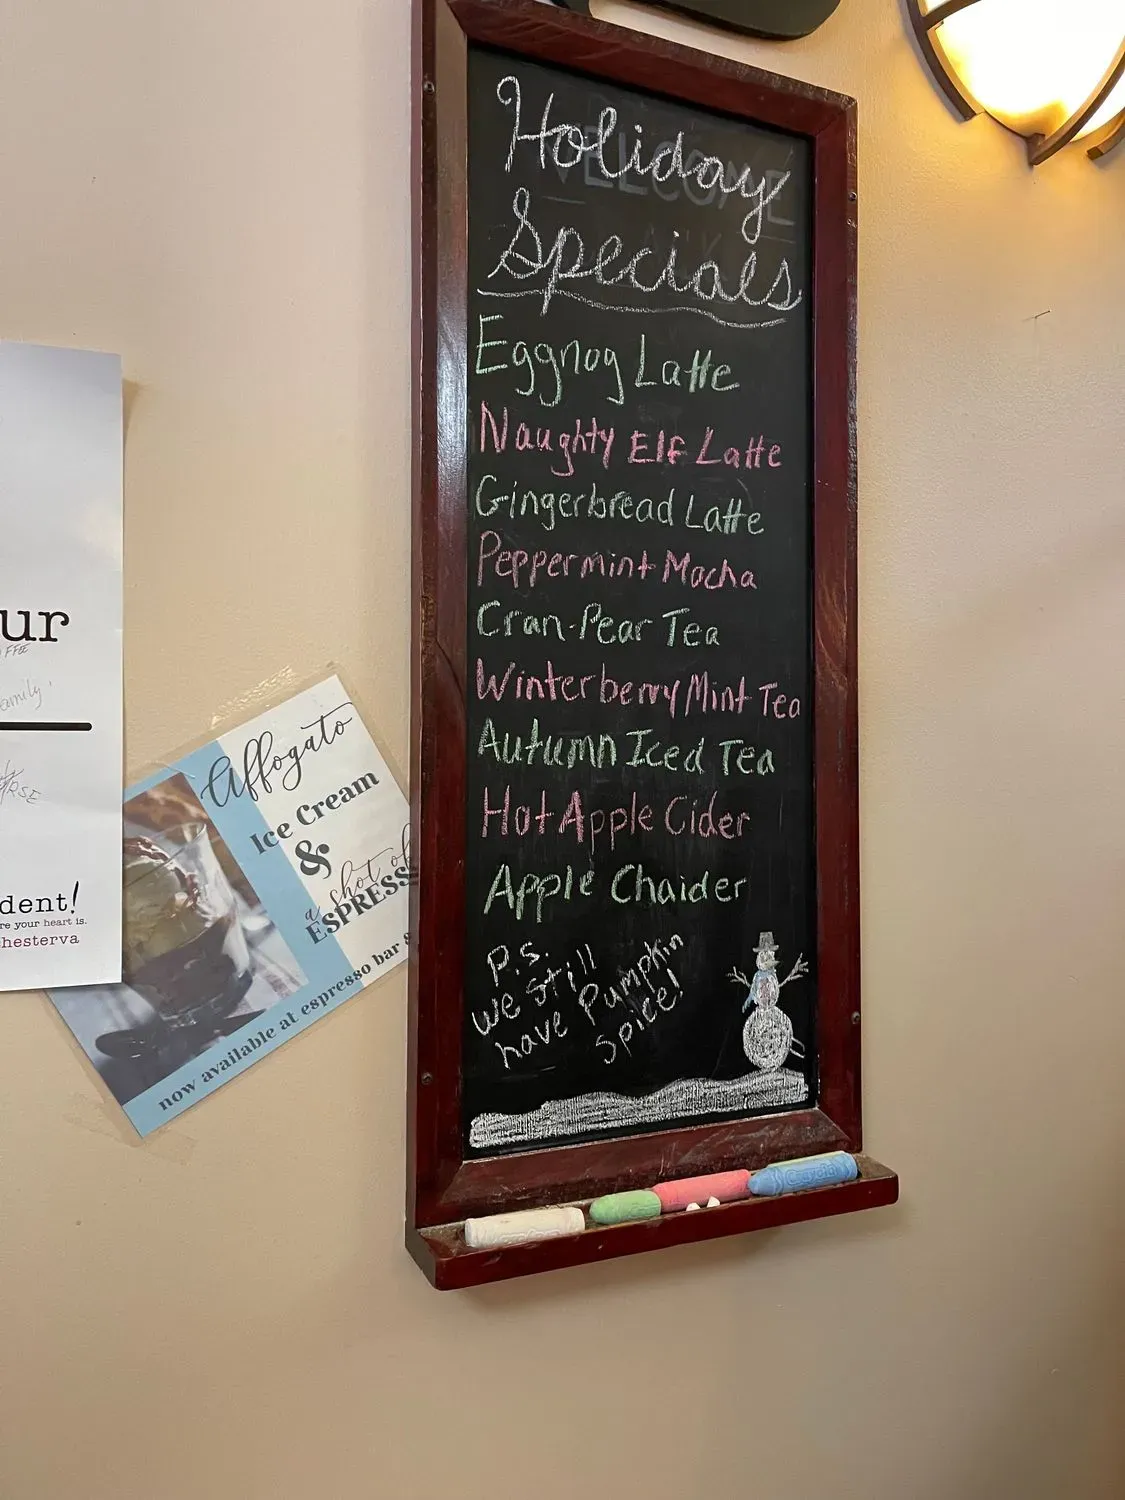 Holiday
Specials
Eggnog Latte
Naughty Elf Latte
Gingerbread Latte
Peppermint Mocha
Cran-Pear Tea
Winterberry Mint Tea
Autumn Iced Tea
Hot Apple Cider
Apple Chaider
P.S.
we still
have Pumpkin
Spice!
WELCOME
Affogato
Ice Cream
&
a shot of
ESPRESS
now available at espresso bar &
ur
OFFEE
amily
dent!
re your heart is.
hesterva
Crayola